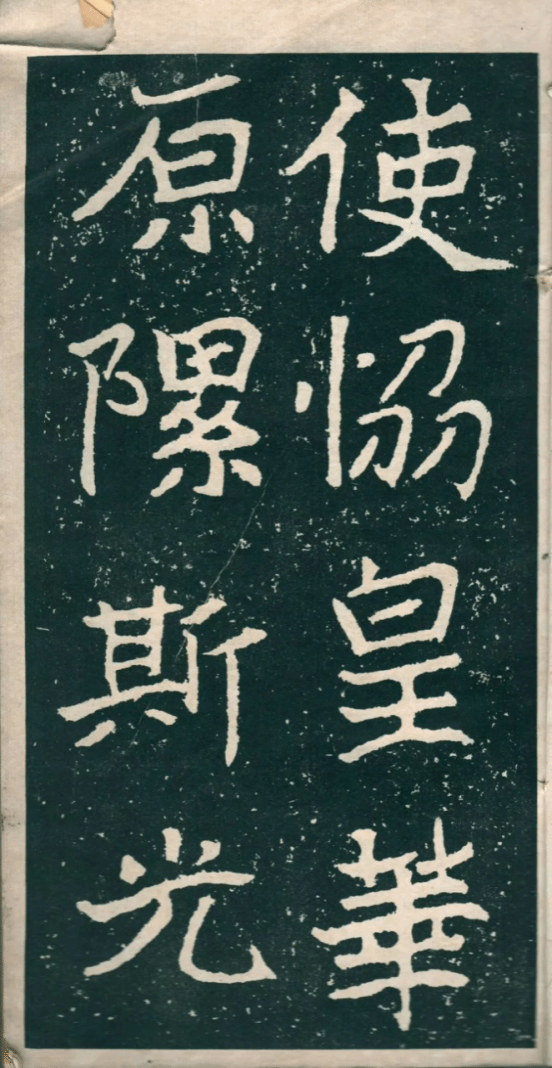 使恊皇華
原隰斯光